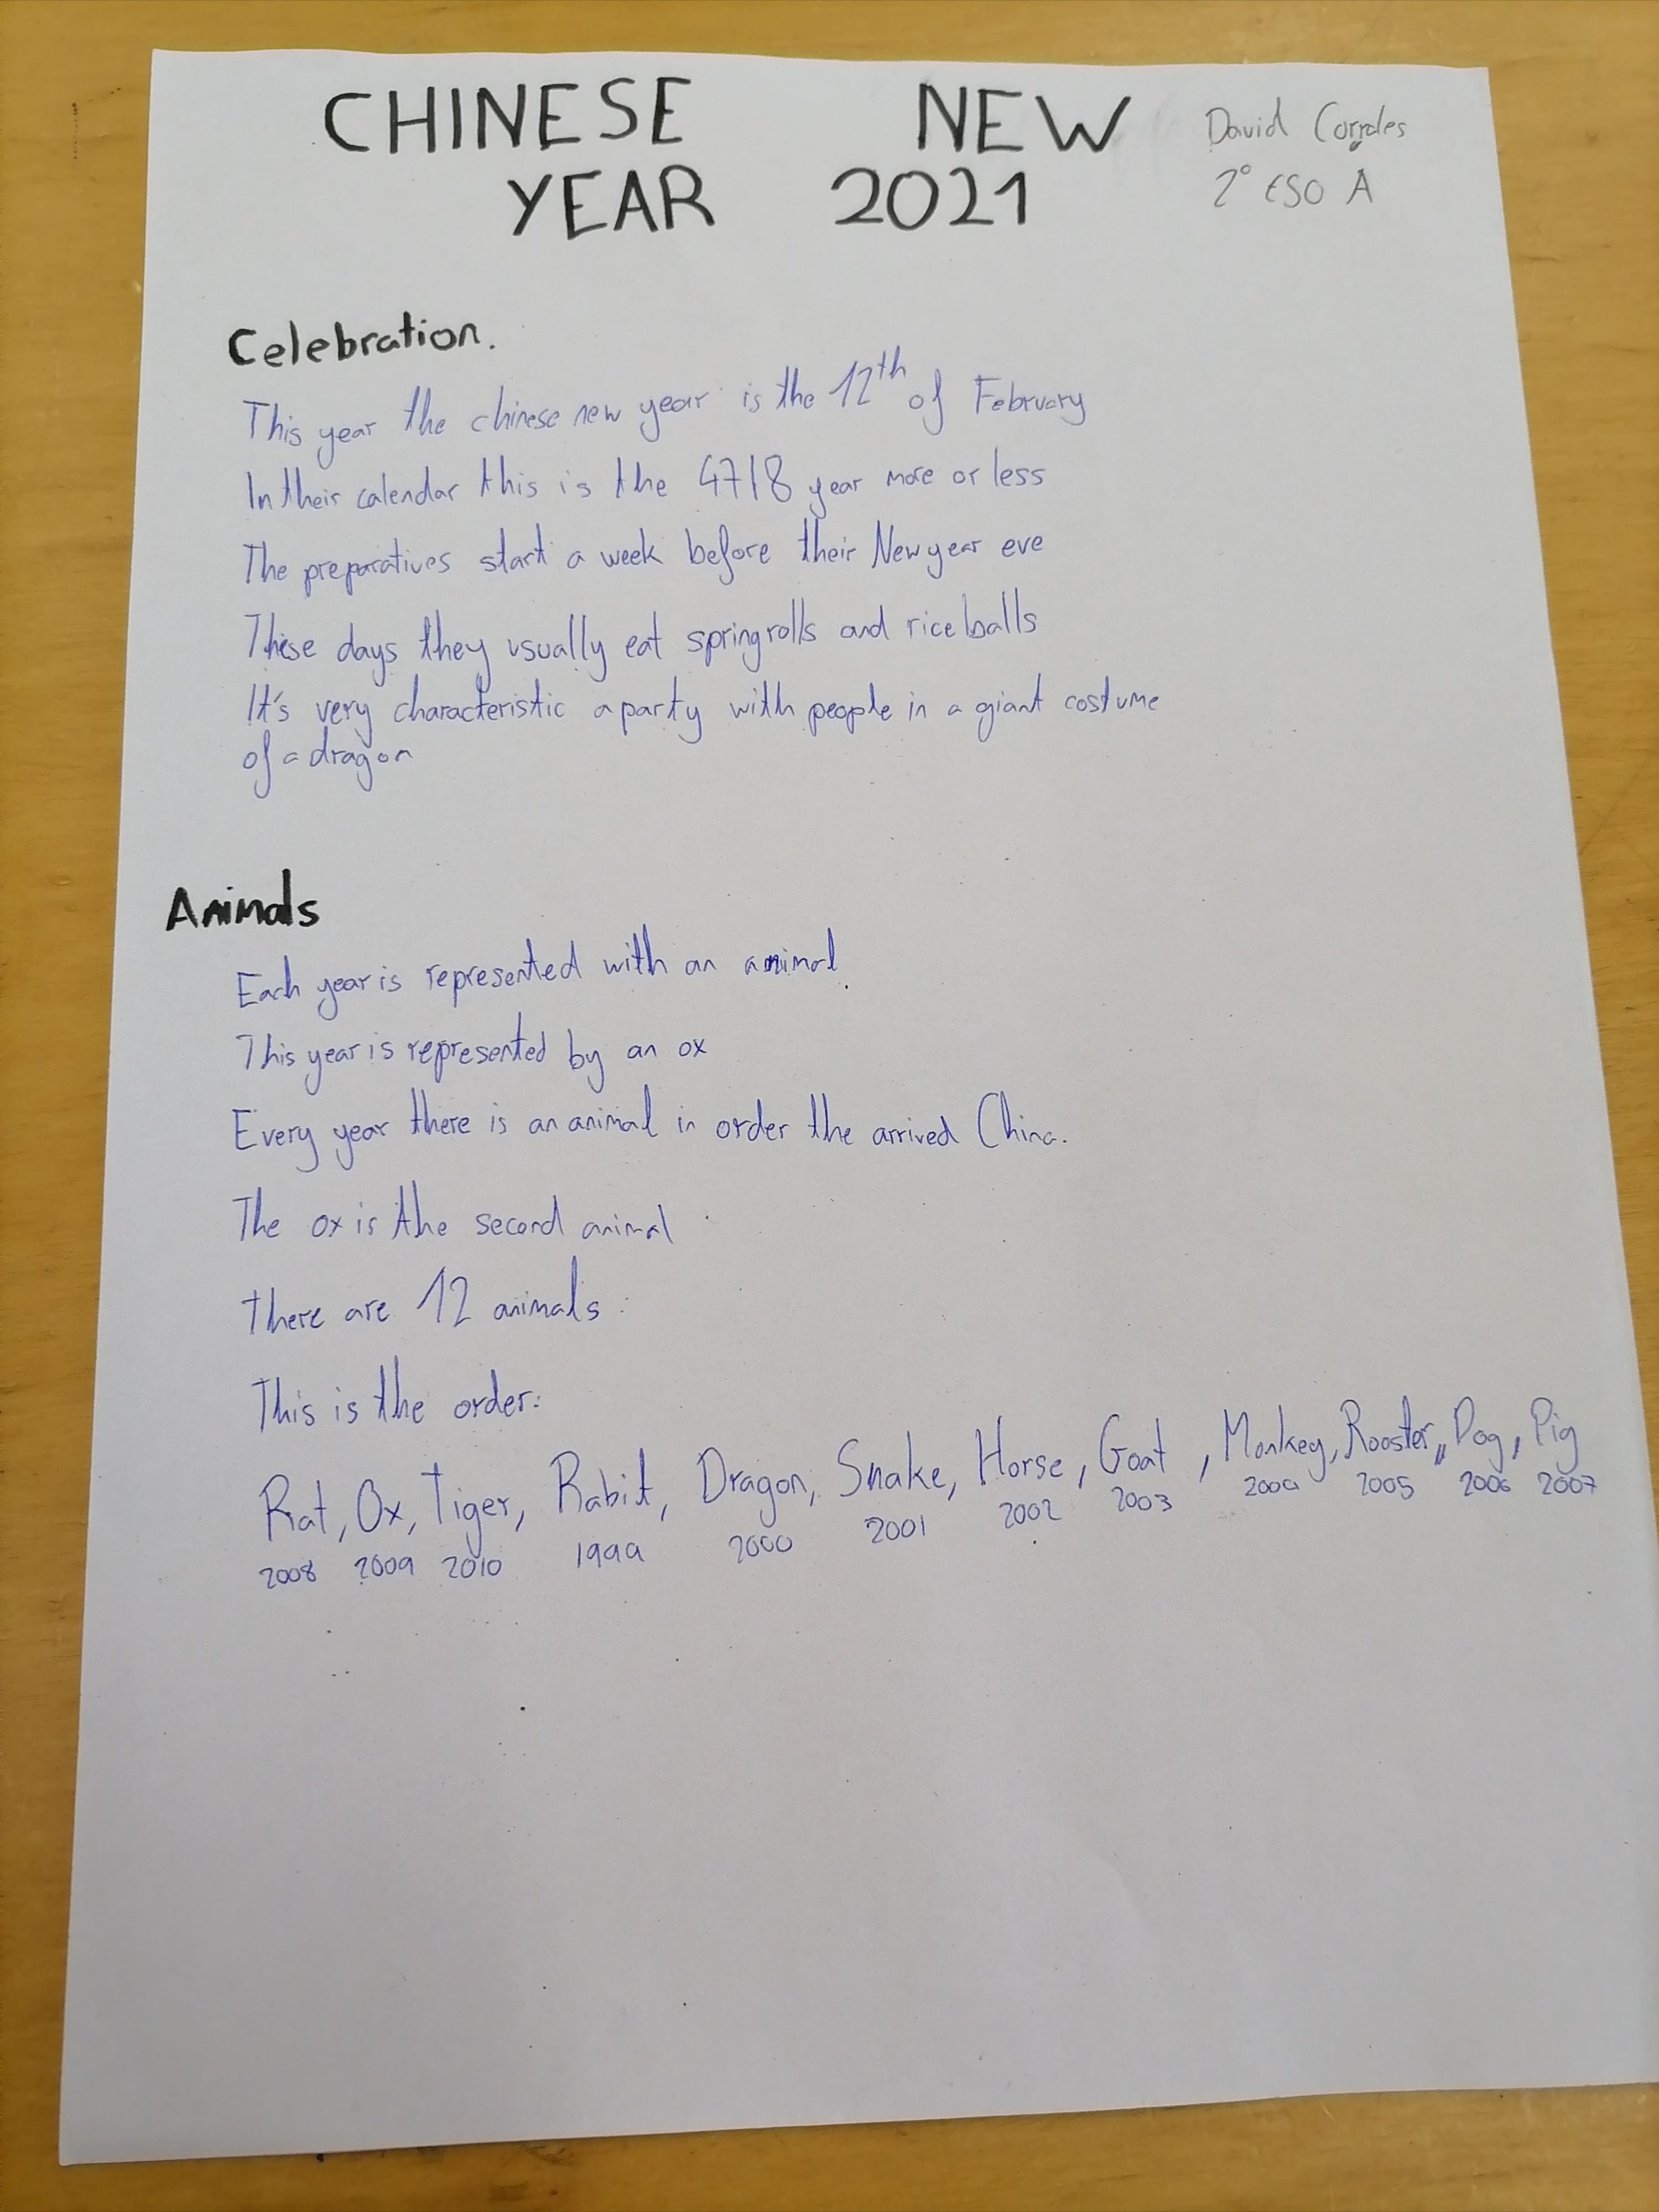 CHINESE NEW
YEAR 2021
David Corrales
2° ESO A
Celebration.
This year the chinese new year is the 12th of February
In their calendar this is the 4718 year more or less
The preparatives start a week before their New year eve
These days they usually eat spring rolls and rice balls
It's very characteristic a party with people in a giant costume
of a dragon
Animals
Each year is represented with an animal.
This year is represented by an ox
Every year there is an animal in order the arrived China.
The ox is the second animal
there are 12 animals:
This is the order:
Rat, Ox, Tiger, Rabit, Dragon, Snake, Horse, Goat, Monkey, Rooster,, Dog, Pig
2008 2009 2010 1999 2000 2001 2002 2003 2004 2005 2006 2007